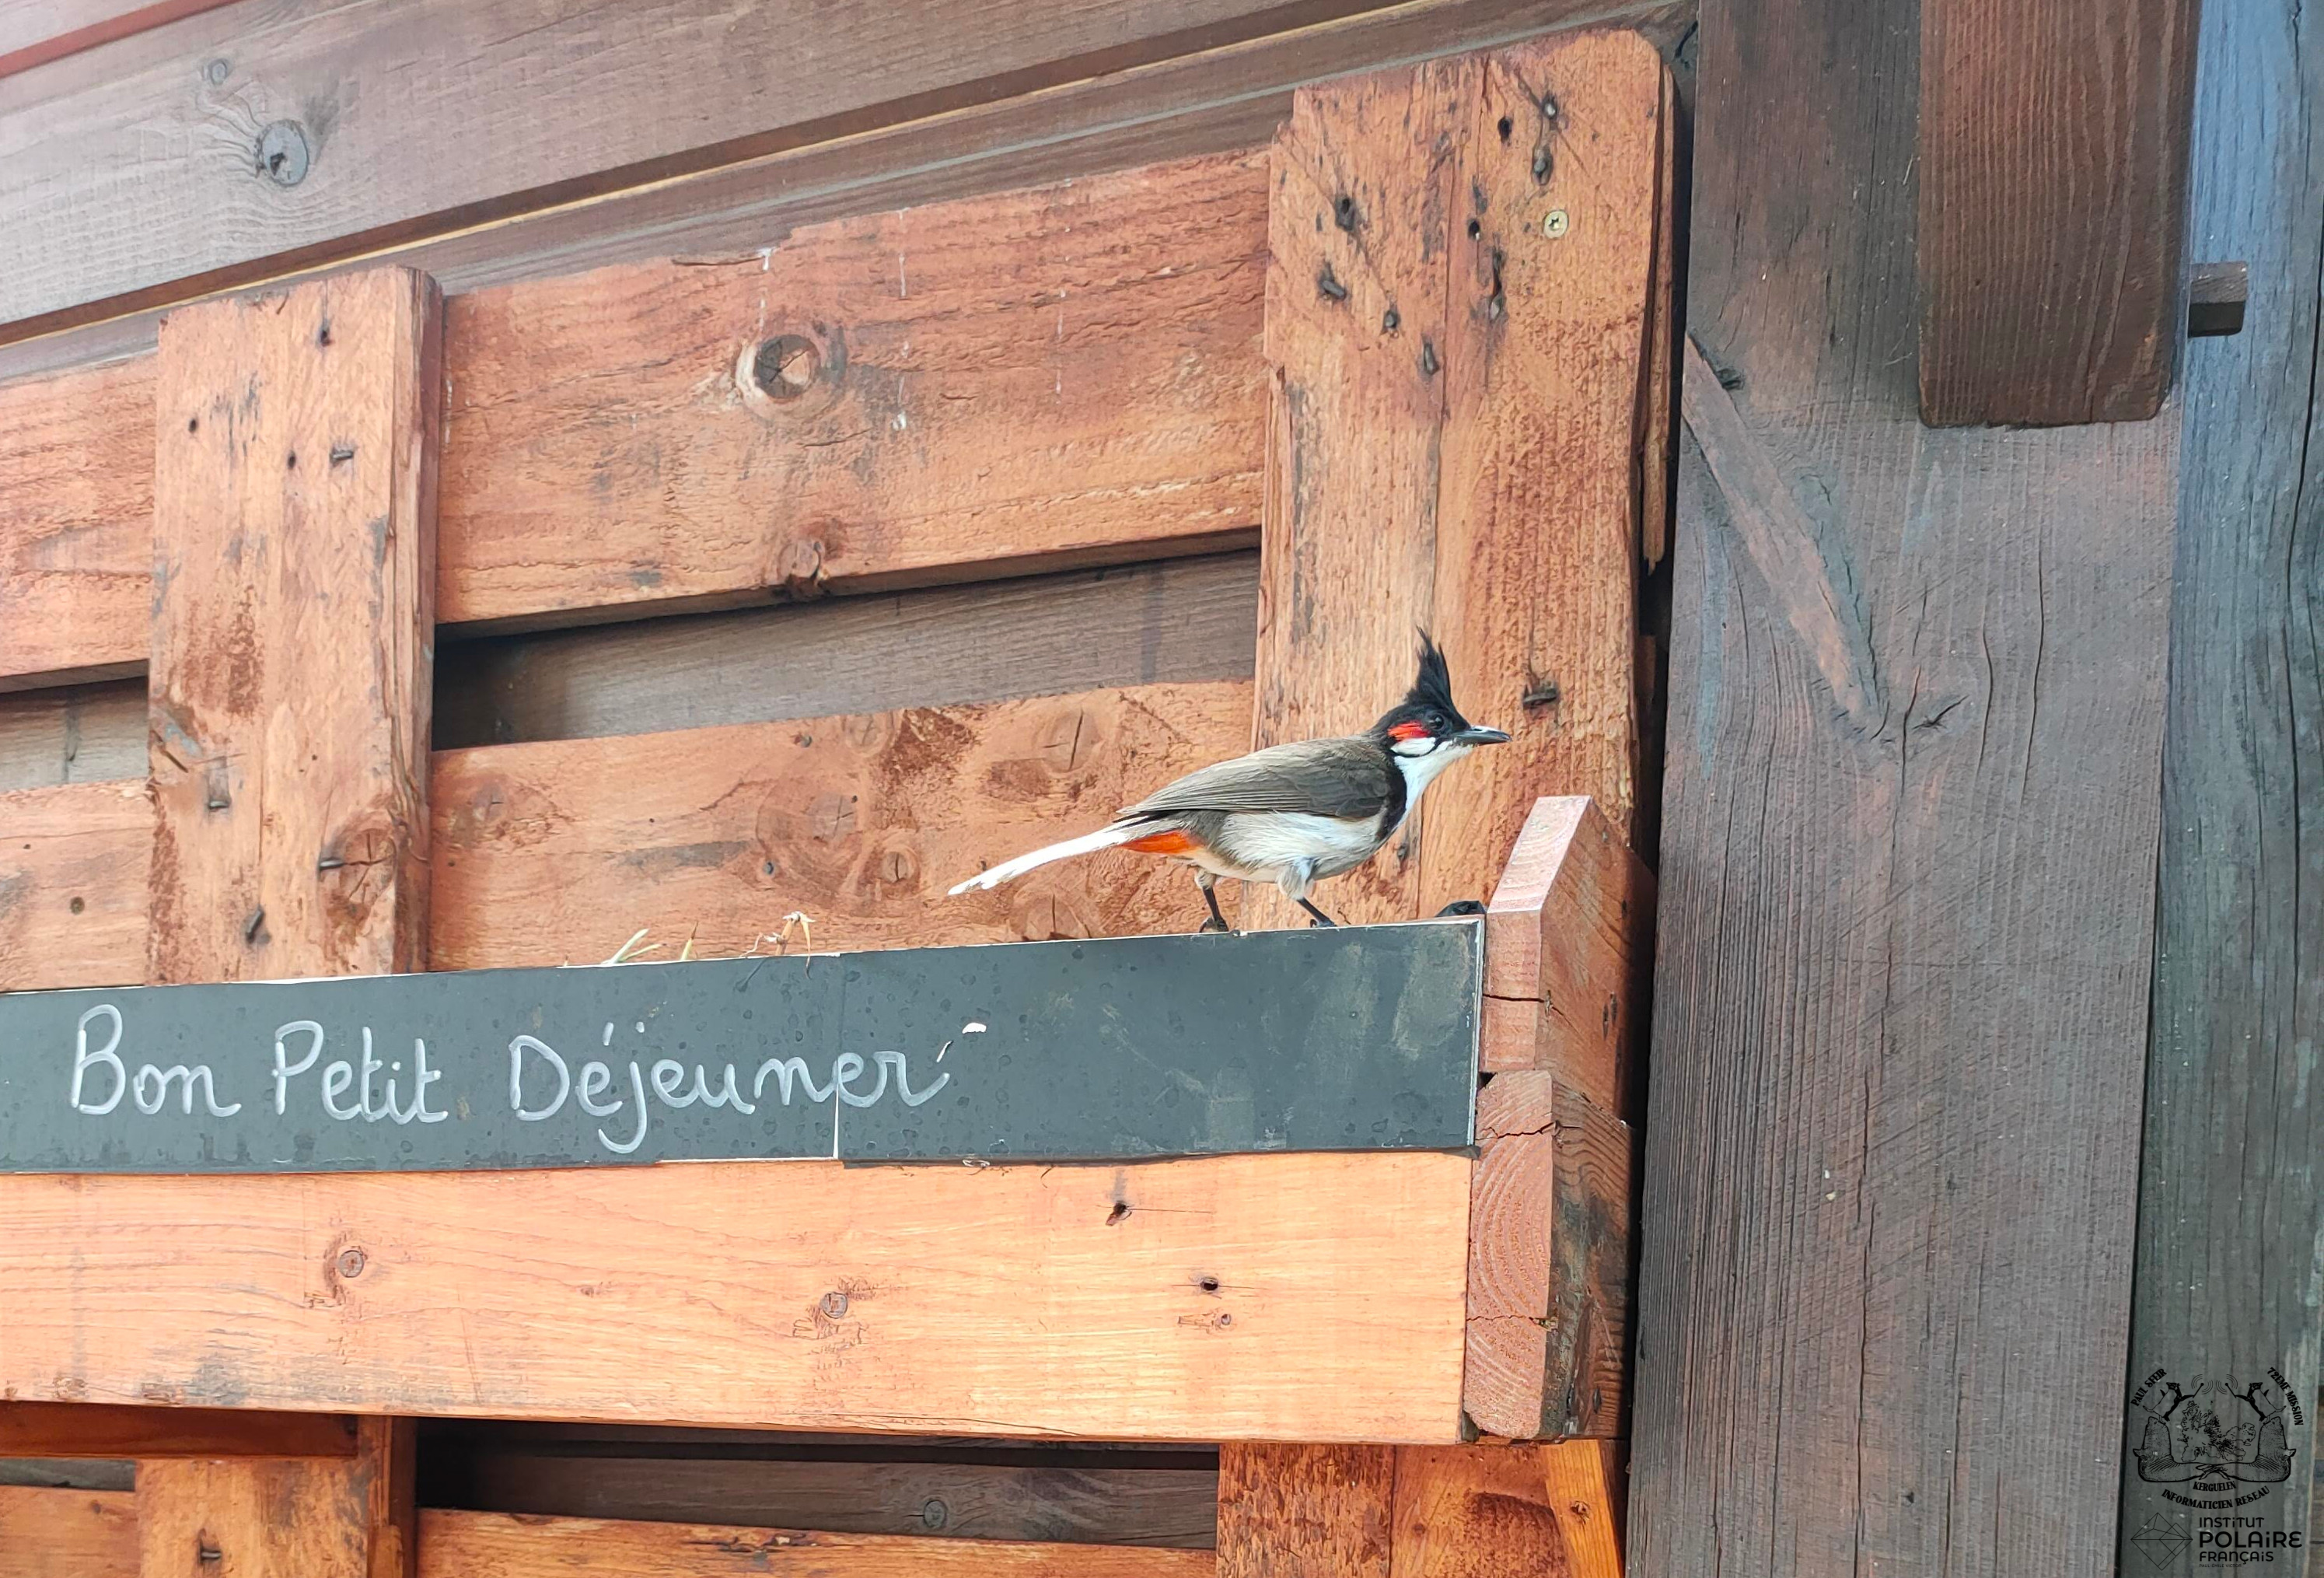 Bon Petit Déjeuner
PAUL SFEIR
72EME MISSION
KERGUELEN
INFORMATICIEN RESEAU
INSTITUT
POLAIRE
FRANÇAIS